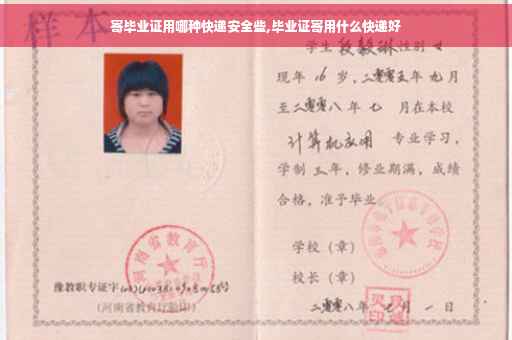 寄毕业证用哪种快递安全些,毕业证寄用什么快递好
样本
学生 段毅琳 性别 女
现年 16 岁，二零零五年 九月
至二零零八年 七 月在本校
计算机应用 专业学习，
学制 三年，修业期满，成绩
合格，准予毕业
学校（章）
校长（章）
二零零八年 月 一 日
河南省教育厅
豫教职专证字
（河南省教育厅验印）